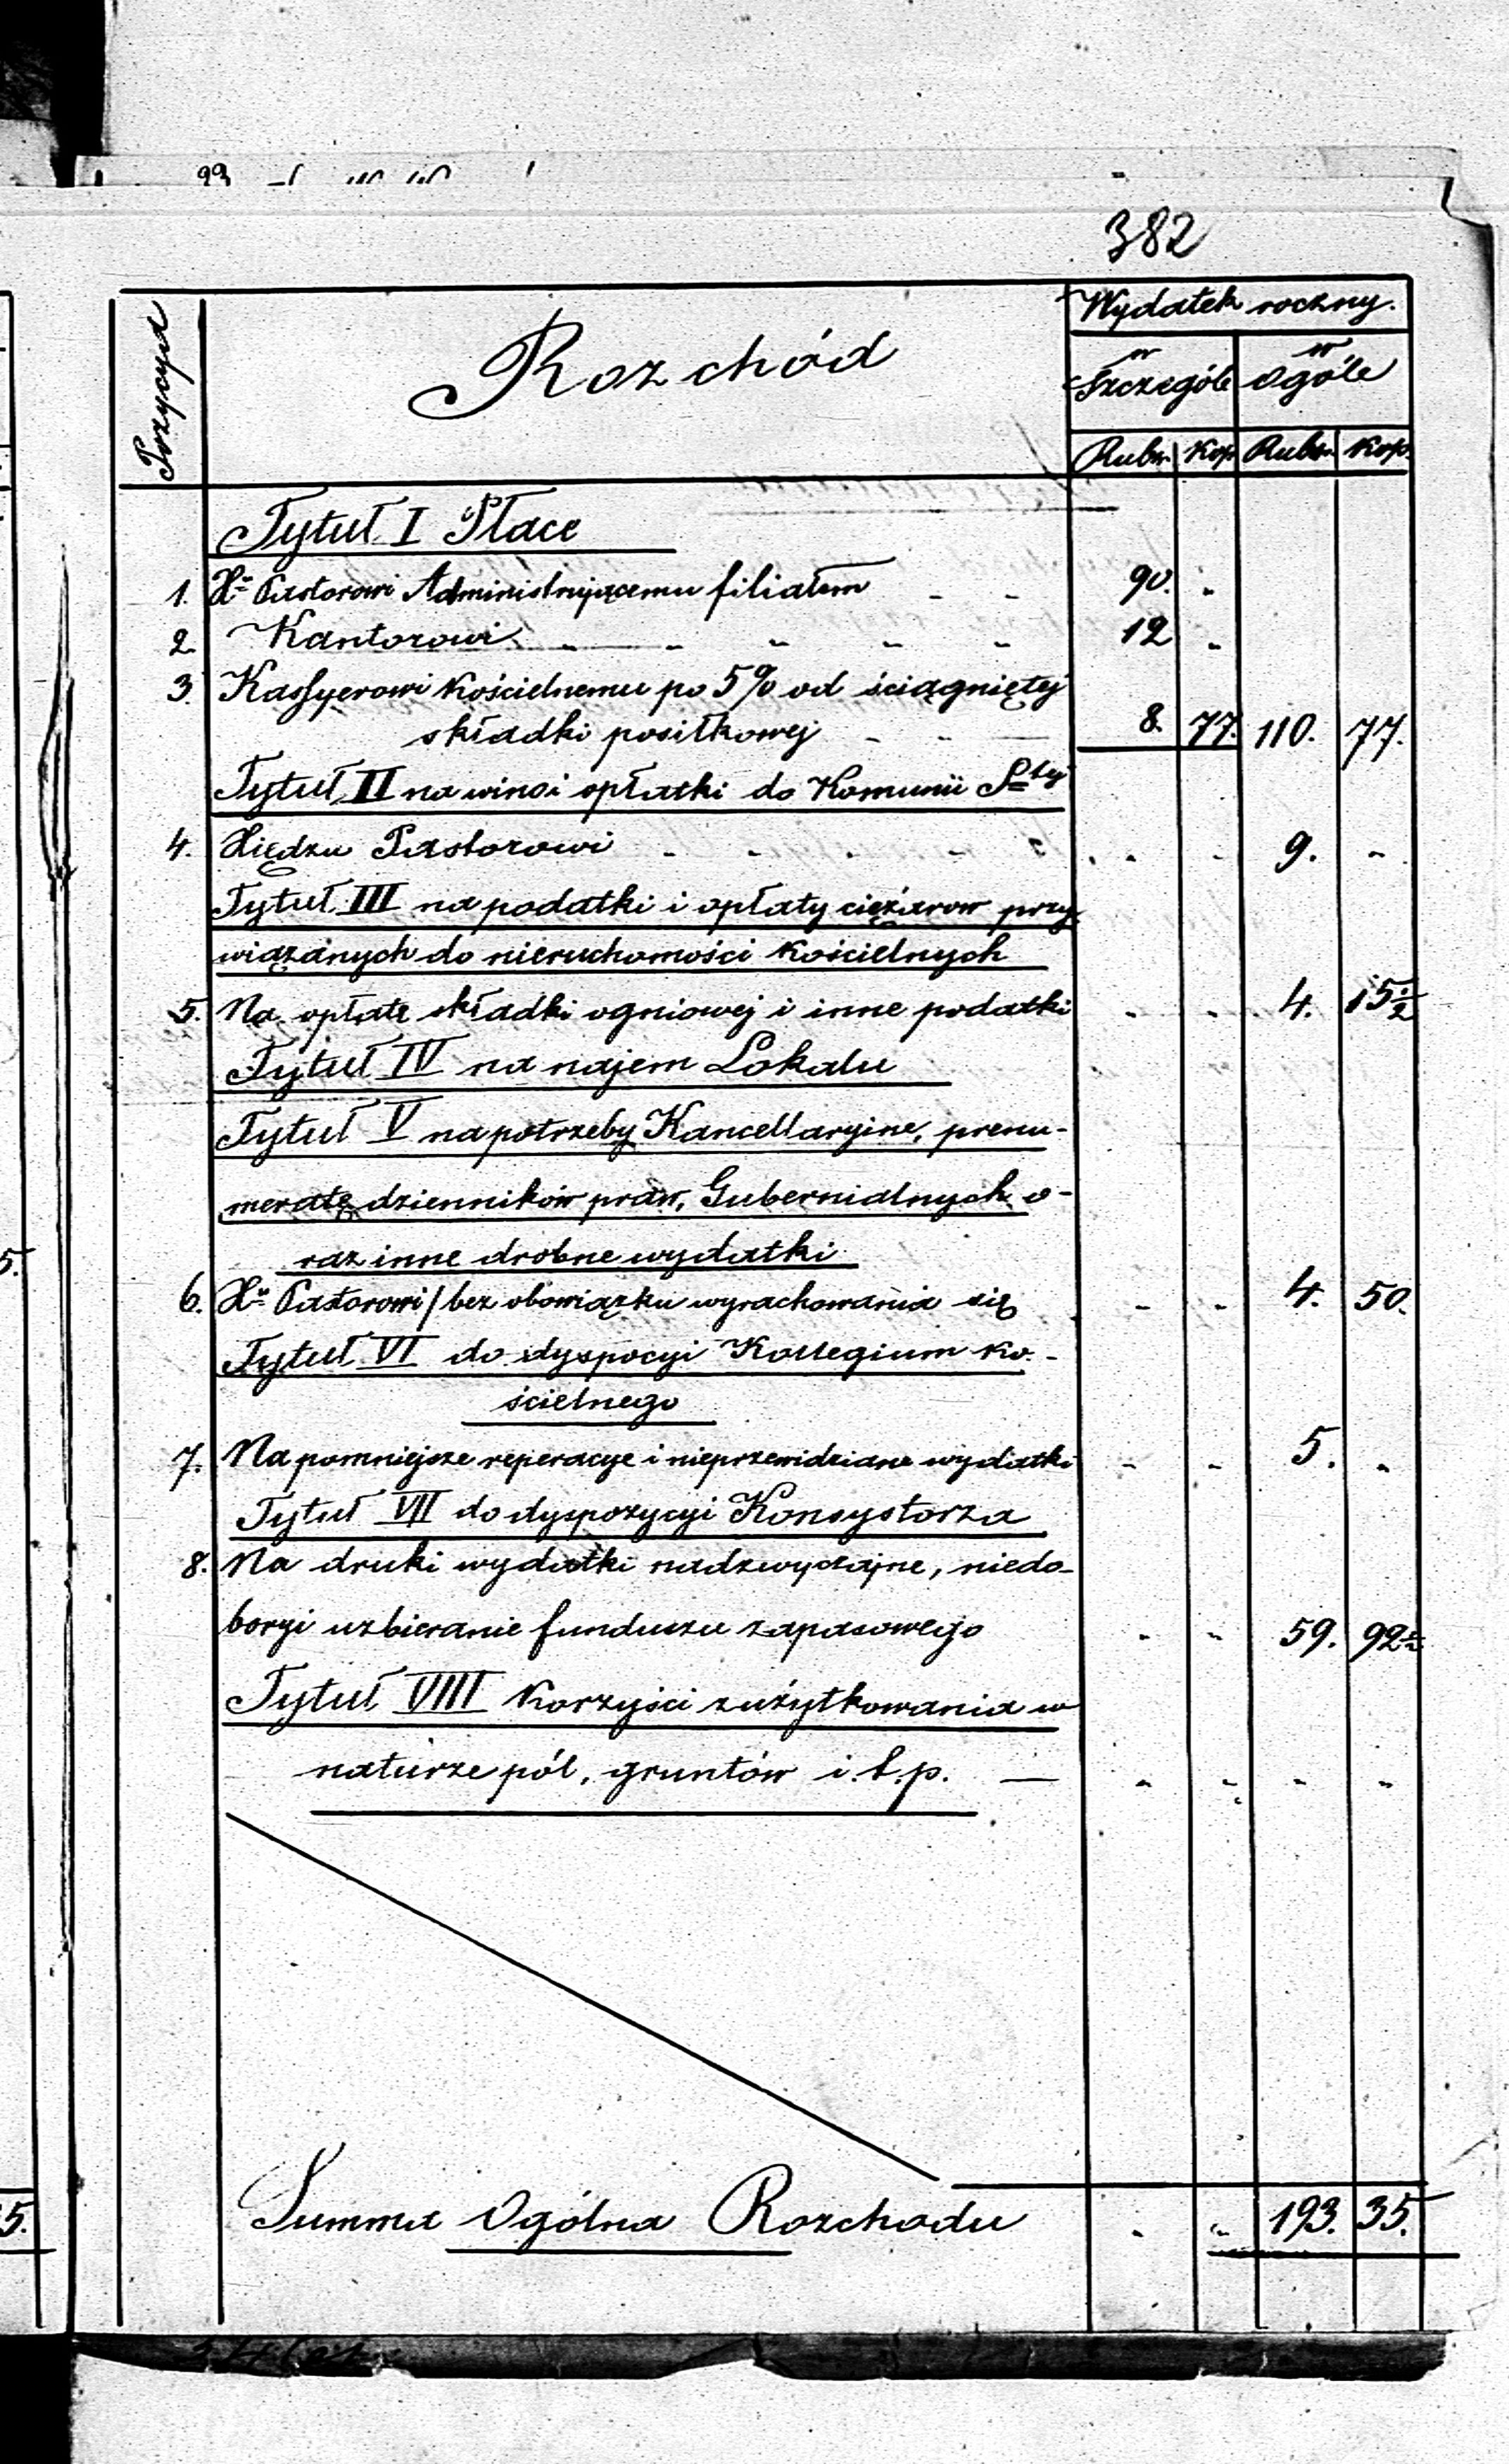 382
Pozycya
Rozchód
Wydatek roczny.
w Szczególe
w Ogóle
Rubr. Kop. Rubr. Kop.
Tytuł I Płace
1. Xu Pastorowi Administrującemu filiałem - - 90. -
2. Kantorowi - - - - - 12 -
3. Kassyerowi Kościelnemu po 5% od ściągniętej
składki posiłkowej - - - 8. 77. 110. 77.
Tytuł II na wino i opłatki do Komunii Stej
4. Xiędzu Pastorowi - - - - - - - 9. -
Tytuł III na podatki i opłaty ciężarow przy
wiązanych do nieruchomości Kościelnych
5. Na opłate składki ogniowej i inne podatki - - 4. 15½
Tytuł IV na najem Lokalu
Tytuł V na potrzeby Kancellaryine, prenu-
meratę dzienników praw, Gubernialnych o-
raz inne drobne wydatki
6. Xu Pastorowi / bez obowiązku wyrachowania się - - 4. 50.
Tytuł VI do dyspocyi Kollegium Ko-
ścielnego
7. Na pomniejsze reperacye i nieprzewidziane wydatki - - 5. -
Tytuł VII do dyspozycyi Konsystorza
8. Na druki wydatki nadzwyczajne, niedo-
bory i uzbieranie funduszu zapasowego - - 59. 92½
Tytuł VIII Korzyści zużytkowania w
naturze pól, gruntów i.t.p. — - - - -
Summa Ogólna Rozchodu - - 193. 35.